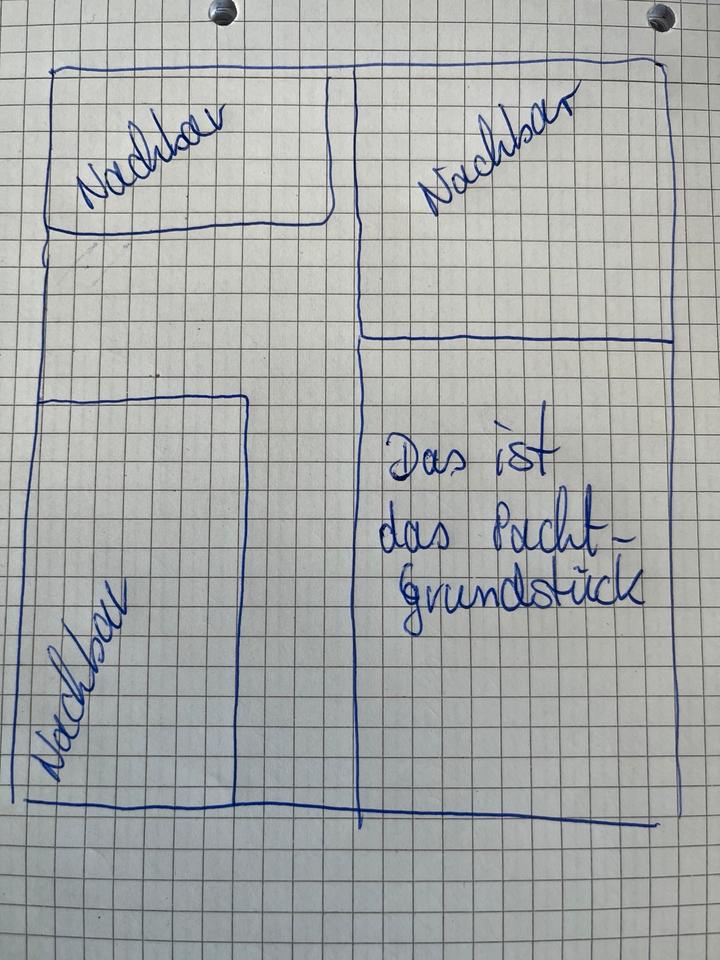 Nachbar
Nachbar
Das ist
das Pacht-
grundstück
Nachbar